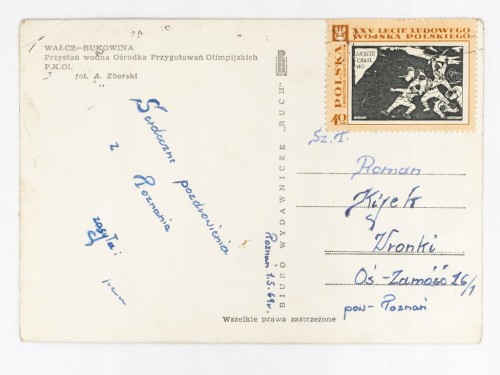 WAŁCZ—BUKOWINA
Przystań wodna Ośrodka Przygotowań Olimpijskich
P.K.Ol.
fot. A. Zborski
Serdeczne pozdrowienia
z Poznania
zasyła:
Poznań 1.5.69r.
BIURO WYDAWNICZE "RUCH"
Wszelkie prawa zastrzeżone
XXV LECIE LUDOWEGO
WOJSKA POLSKIEGO
POLSKA
40
MONTE
CASSI
NO
Sz. P.
Roman
Wronki
Oś-Zamość 16/1
pow- Poznań